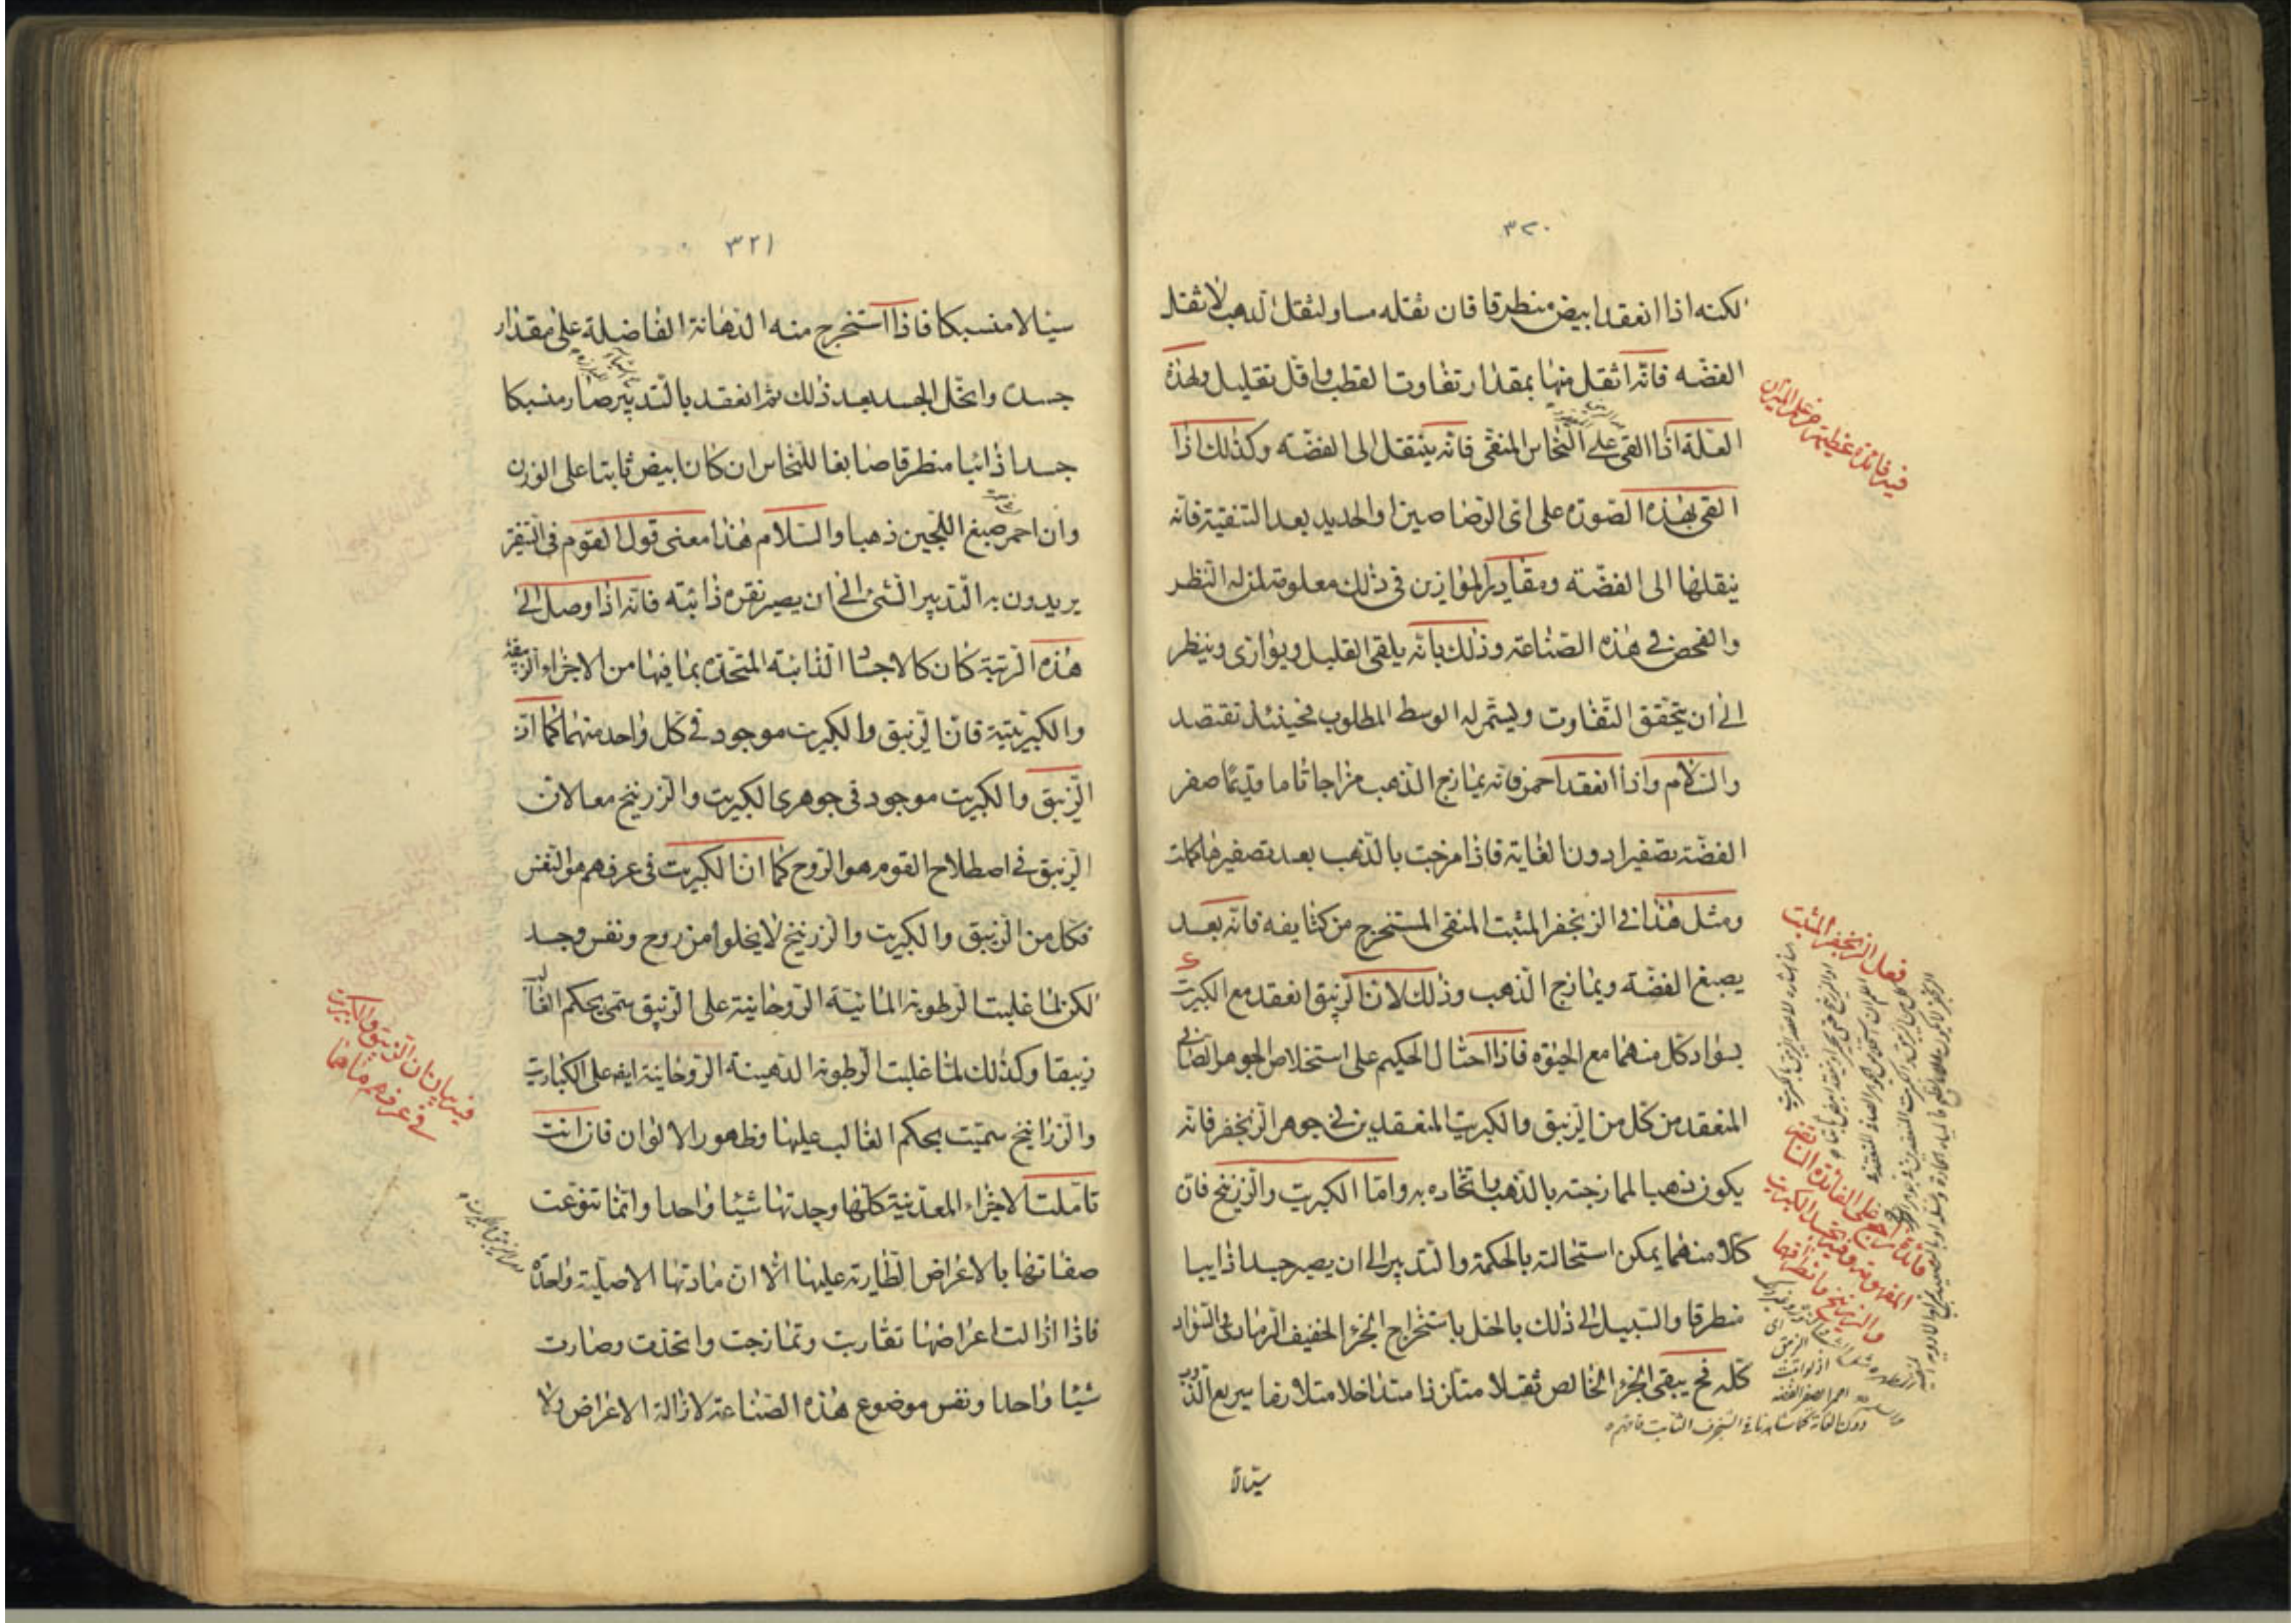 ٣٢٠
لكنه اذا انعقد ابيض منطرقا فان ثقله مساو لثقل الذهب لا ثقل
الفضه فانه اثقل منها بمقدار تفاوت القطب واقل تقليل ولهذه
العلة اذا القى على النحاس المنقى فانه ينتقل الى الفضه وكذلك اذا
القى بهذه الصورة على اى الرصاصين او الحديد بعد التنقية فانه
ينقلها الى الفضه ومقادير الموازين فى ذلك معلومة لمن له النظر
والفحص فى هذه الصناعة وذلك بانه يلقى القليل ويوازى وينظر
الى ان يتحقق التفاوت ويستمر له الوسط المطلوب فحينئذ تقتصد
والسلام واذا انعقد احمر فانه يمازج الذهب مزاجا تاما وربما صفر
الفضة تصفيرا دون الغاية فاذا مزجت بالذهب بعد تصفيرها كملت
ومثل هذا فى الزنجفر المثبت المنقى المستخرج من كثايفه فانه بعد
يصبغ الفضة ويمازج الذهب وذلك لان الزيبق انعقد مع الكبريت
بسواد كل منهما مع الحيوة فاذا احتال الحكيم على استخلاص الجوهر الصافى
المنعقد من كل من الزيبق والكبريت المنعقدين فى جوهر الزنجفر فانه
يكون ذهبا لممازجته بالذهب واتحاده به واما الكبريت والزرنيخ فان
كلا منهما يمكن استحالته بالحكمة والتدبير الى ان يصير جسدا ذايبا
منطرقا والسبيل الى ذلك بالحل باستخراج الجزء الخفيف الرمادى السواد
كله فح يبقى الجزء الخالص ثقيلا متلززا متداخلا متلازما سريع الذوب
سيالا
فيه فائدة عظيمة من علم الميزان
فعل الزنجفر المثبت
فى الشنجرف الثابت فافهم
٣٢١
سيالا منسبكا فاذا استخرج منه الدهانة الفاضلة على مقدار
جسده وانحل الجسد بعد ذلك ثم انعقد بالتدبير صار منسبكا
جسدا ذائبا منطرقا صابغا للنحاس ان كان ابيض ثابتا على الوزن
وان احمر صبغ اللجين ذهبا والسلام هذا معنى قول القوم فى التنقر
يريدون به التدبير الشئ الى ان يصير نقره ذائبه فانه اذا وصل الى
هذه الرتبة كان كالاجساد الذائبة المتحدة بما فيها من الاجزاء الزيبقية
والكبريتية فان الزيبق والكبريت موجود فى كل واحد منهما كما ان
الزيبق والكبريت موجود فى جوهرى الكبريت والزرنيخ معا لان
الزيبق فى اصطلاح القوم هو الروح كما ان الكبريت فى عرفهم هو النفس
فكل من الزيبق والكبريت والزرنيخ لا يخلوا من روح ونفس وجسد
لكن لما غلبت الرطوبة المائية الروحانية على الزيبق سمى بحكم الغالب
زيبقا وكذلك لما غلبت الرطوبة الدهينة الروحانية ايضا على الكباريت
والزرانيخ سميت بحكم الغالب عليها وظهور الالوان فان انت
تاملت الاجزاء المعدنية كلها وجدتها شيئا واحدا وانما تنوعت
صفاتها بالاعراض الطارية عليها الا ان مادتها الاصلية واحدة
فاذا ازالت اعراضها تقاربت وتمازجت واتحدت وصارت
شيئا واحدا ونفس موضوع هذه الصناعة لازالة الاعراض ولا
فيه بيان ان الزيبق والكبريت
فى عرفهم ما هما